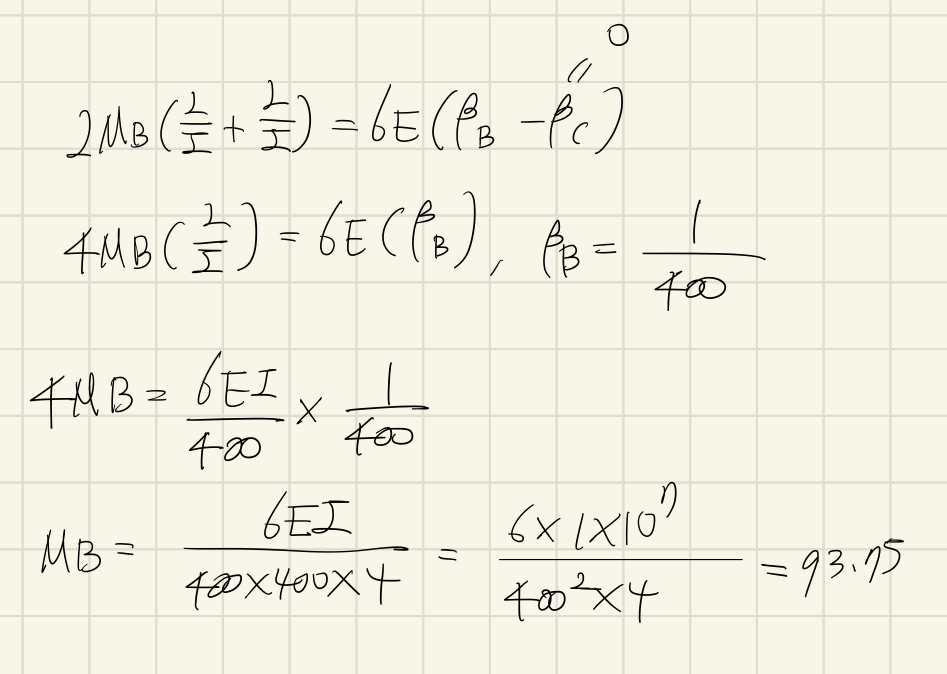 0
2MB(L/I + L/I) = 6E(βB - βC)
4MB(L/I) = 6E(βB), βB = 1/400
4MB = 6EI/400 × 1/400
MB = 6EI/(400×400×4) = 6×1×10^7/(400^2×4) = 93.75